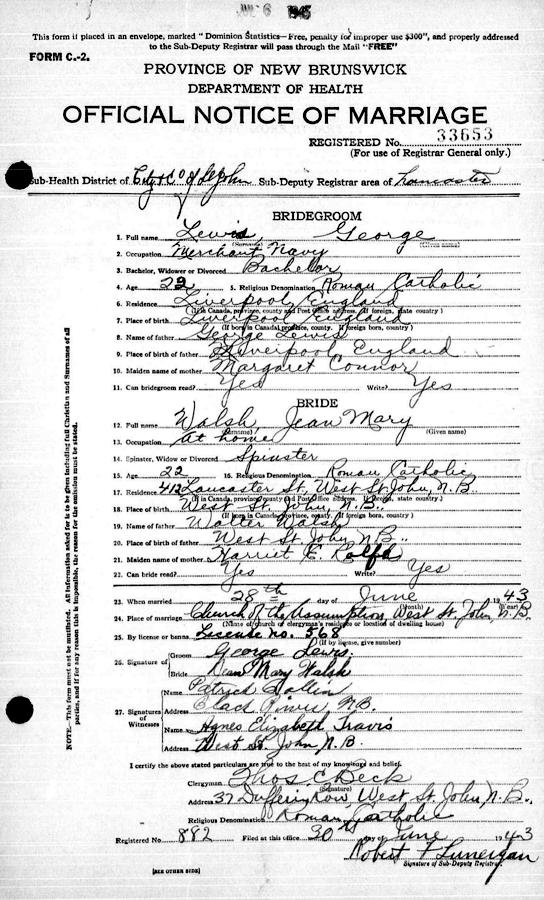 This form if placed in an envelope, marked "Dominion Statistics—Free, penalty for improper use $300", and properly addressed
to the Sub-Deputy Registrar will pass through the Mail "FREE"
FORM C.-2.
PROVINCE OF NEW BRUNSWICK
DEPARTMENT OF HEALTH
OFFICIAL NOTICE OF MARRIAGE
REGISTERED No. 33653
(For use of Registrar General only.)
Sub-Health District of City & Co of St John Sub-Deputy Registrar area of Lancaster
BRIDEGROOM
1. Full name Lewis George
(Surname) (Given name)
2. Occupation Merchant Navy
3. Bachelor, Widower or Divorced Bachelor
4. Age 22 5. Religious Denomination Roman Catholic
6. Residence Liverpool England
(If in Canada, province, county and Post Office address. If foreign, state country)
7. Place of birth Liverpool England
(If born in Canada, province, county. If foreign born, country)
8. Name of father George Lewis
9. Place of birth of father Liverpool England
10. Maiden name of mother Margaret Connor
11. Can bridegroom read? Yes Write? Yes
BRIDE
12. Full name Walsh, Jean Mary
(Surname) (Given name)
13. Occupation At home
14. Spinster, Widow or Divorced Spinster
15. Age 22 16. Religious Denomination Roman Catholic
17. Residence 412 Lancaster St, West St. John, N.B.
(If in Canada, province, county and Post Office address. If foreign, state country)
18. Place of birth West St. John, N.B.
(If born in Canada, province, county. If foreign born, country)
19. Name of father Walter Walsh
20. Place of birth of father West St. John, N.B.
21. Maiden name of mother Harriet E. Rolfe
22. Can bride read? Yes Write? Yes
23. When married 28th day of June 1943
(Month) (Year)
24. Place of marriage Church of the Assumption, West St. John N.B.
(Name of church or clergyman's residence or location of dwelling house)
25. By license or banns License no. 568
(If by license, give number)
26. Signature of Groom George Lewis.
Bride Jean Mary Walsh
27. Signatures of Witnesses Name Patrick
Address Black River, N.B.
Name Agnes Elizabeth Travis
Address West St. John N.B.
I certify the above stated particulars are true to the best of my knowledge and belief.
Clergyman Thos. C. Beck
(Signature)
Address 37 Dufferin Row, West St. John, N.B.
Religious Denomination Roman Catholic
Registered No 882 Filed at this office 30th day of June 1943
Robert F Lunergan
Signature of Sub-Deputy Registrar
(SEE OTHER SIDE)
NOTE.—This form must not be mutilated. All information asked for is to be given including full Christian and Surnames of all
parties, and if for any reason this is impossible, the reason for the omission must be stated.